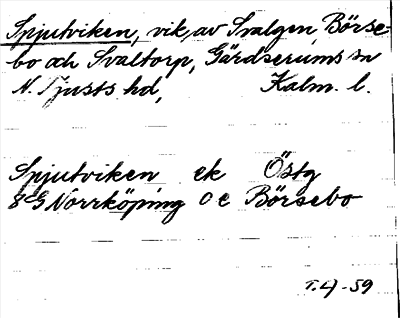 Spjutviken, vik, av Svalgen, Börse-
bo och Svaltorp, Gärdserums sn
N. Tjusts hd, Kalm. l.
Spjutviken ek Östg
8G Norrköping O e Börsebo
T. 4 - 59